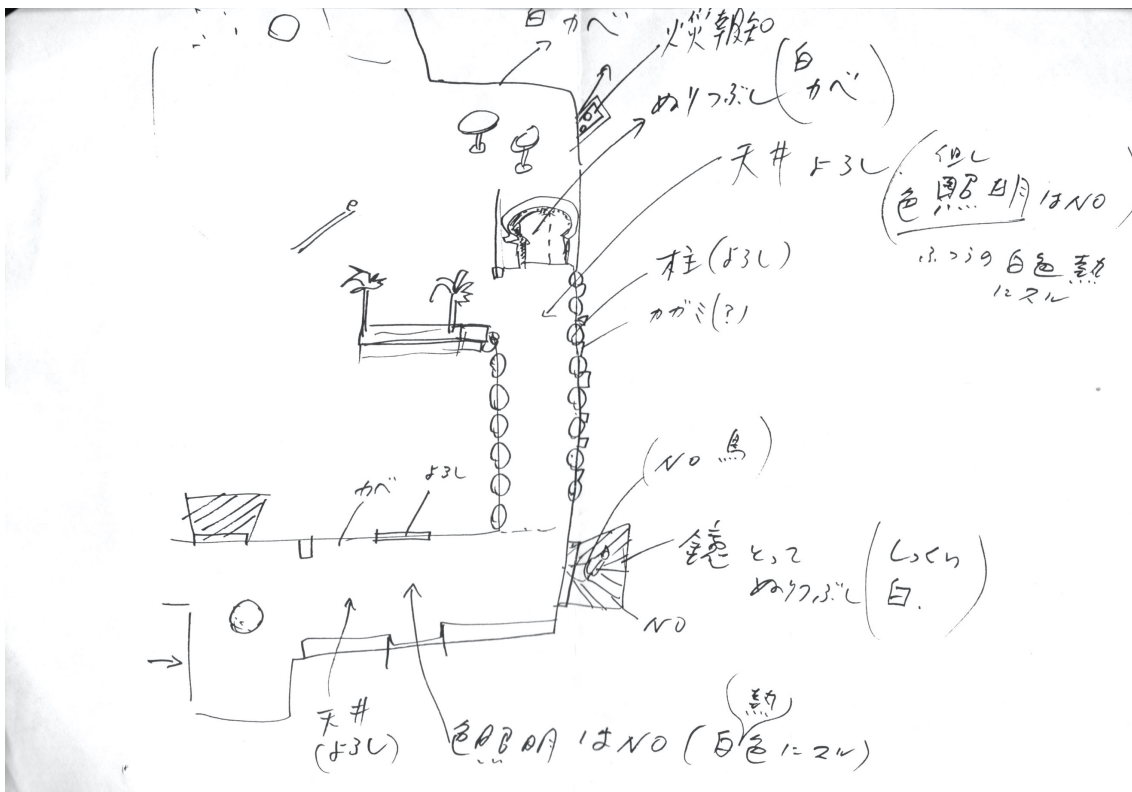 白カベ
火災報知
ぬりつぶし(白
カベ)
天井よろし(但し
色照明はNO)
ふつうの白色熱
にスル
柱(よろし)
カガミ(?)
(NO 鳥)
カベ
よろし
鏡とって
ぬりつぶし(しっくい
白.)
NO
天井
(よろし)
熱
色照明はNO(白色にスル)